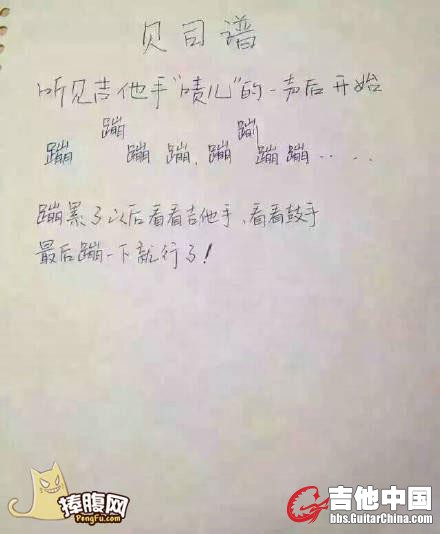 贝司谱
听见吉他手“啧儿”的一声后开始
蹦 蹦
蹦 蹦 蹦、蹦 蹦 蹦....
蹦累了以后看看吉他手、看看鼓手
最后蹦一下就行了！
捧腹网
PengFu.com
吉他中国
bbs.GuitarChina.com